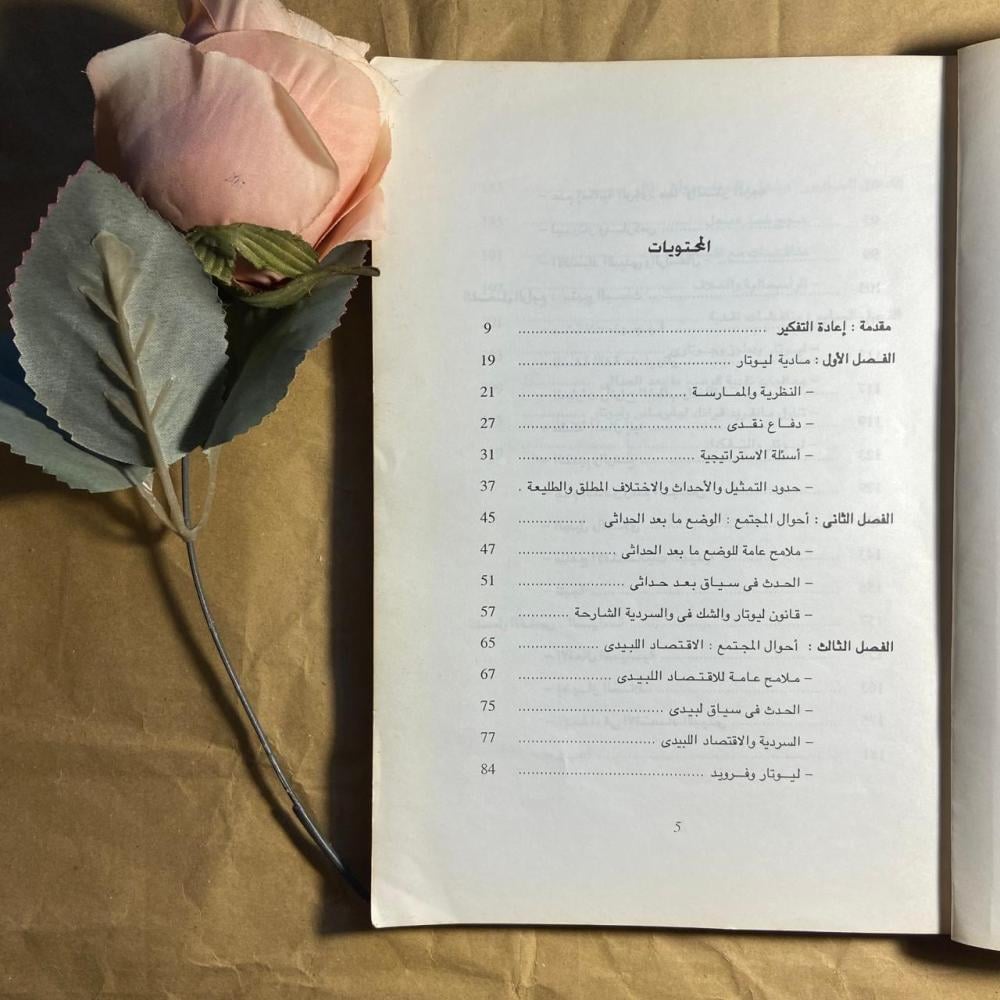 المحتويات
مقدمة : إعادة التفكير ........................... 9
الفصل الأول : مادية ليوتار ........................... 19
– النظرية والممارسة ........................... 21
– دفاع نقدى ........................... 27
– أسئلة الاستراتيجية ........................... 31
– حدود التمثيل والأحداث والاختلاف المطلق والطليعة . 37
الفصل الثانى : أحوال المجتمع : الوضع ما بعد الحداثى ............... 45
– ملامح عامة للوضع ما بعد الحداثى ...................... 47
– الحدث فى سياق بعد حداثى ........................ 51
– قانون ليوتار والشك فى والسردية الشارحة ............ 57
الفصل الثالث : أحوال المجتمع : الاقتصاد اللبيدى .................. 65
– ملامح عامة للاقتصاد اللبيدى ..................... 67
– الحدث فى سياق لبيدى ........................... 75
– السردية والاقتصاد اللبيدى ........................... 77
– ليوتار وفرويد ........................... 84
5